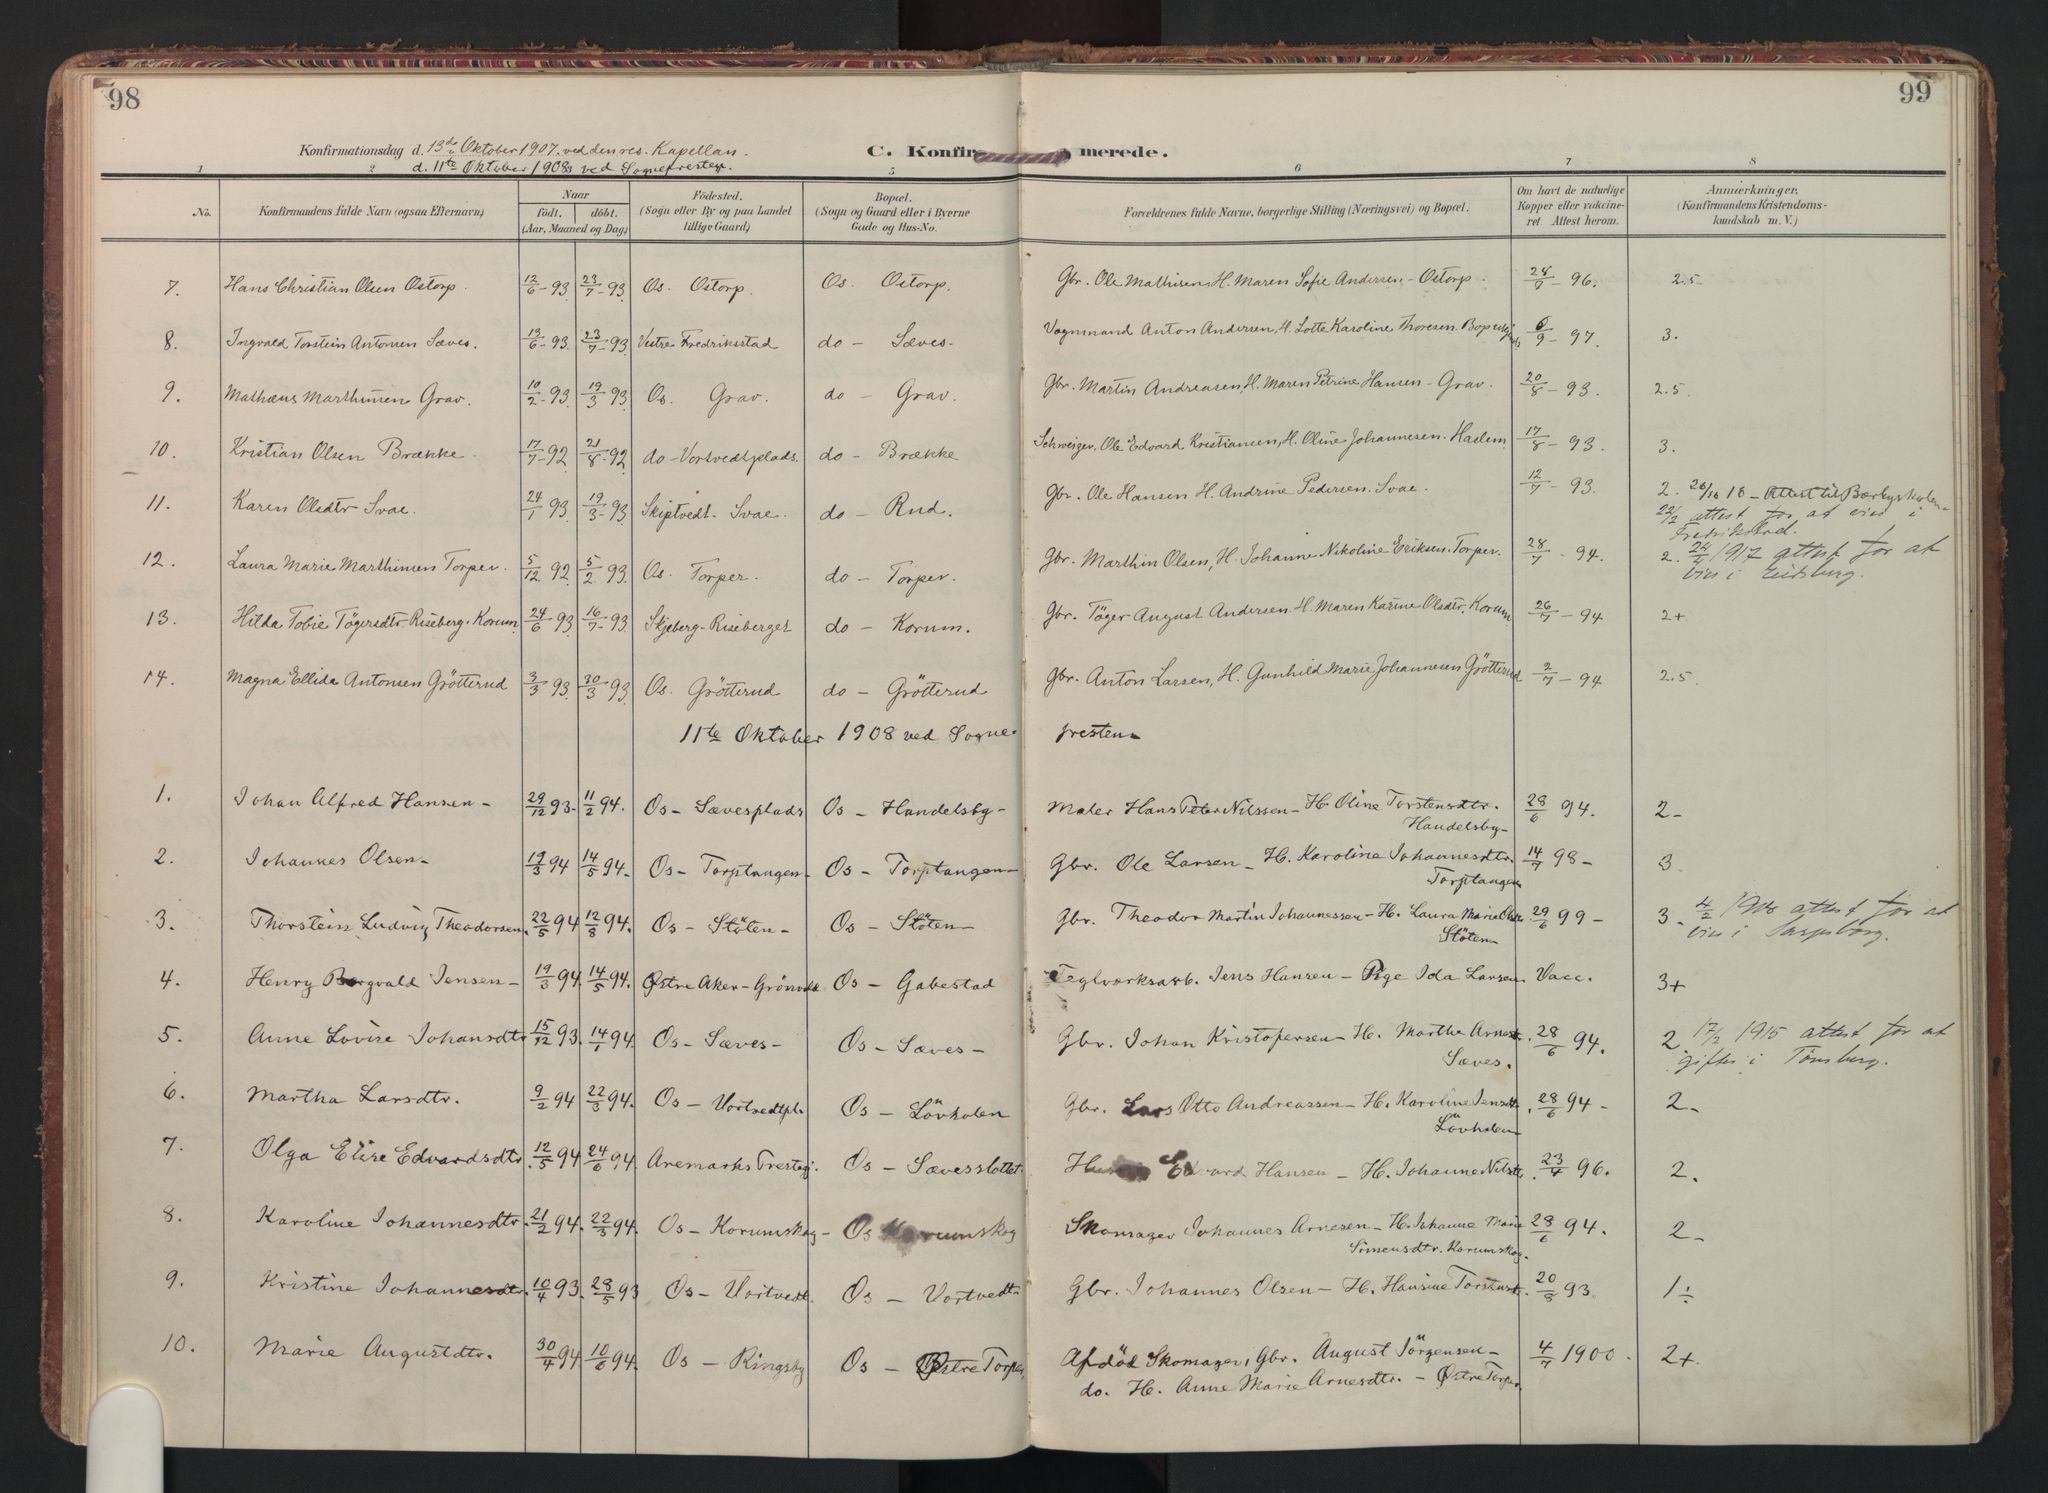 98
99
Konfirmationsdag d. 13de Oktober 1907 ved den res. Kapellan.
d. 11te Oktober 1908 ved Sognepresten.
C. Konfir merede.
1 2 5 6 7 8
No. Konfirmandens fulde Navn (ogsaa Efternavn) Naar födt. döbt. (Aar, Maaned og Dag) Födested. (Sogn eller By og paa Landet tillige Gaard) Bopæl. (Sogn og Gaard eller i Byerne Gade og Hus-No. Forældrenes fulde Navne, borgerlige Stilling (Næringsvei) og Bopæl. Om havt de naturlige Kopper eller vakcineret. Attest herom. Anmærkninger. (Konfirmandens Kristendomskundskab m. V.)
7. Hans Christian Olsen Ostorp. 12/6 - 93 23/7 - 93 Os. Ostorp. Os. Ostorp. Gbr. Ole Mathisen, H. Maren Sofie Andersen - Ostorp. 28/7 - 96. 2.5
8. Ingvald Torstein Antonsen Sæves. 13/6 - 93. 23/7 - 93 Vestre Fredriksstad do - Sæves - Vognmand Anton Andersen, H. Lotte Karoline Thoresen. 6/9 - 97. 3.
9. Mathæus Marthinsen Grav. 10/2 - 93 19/3 93 Os. Grav. do - Grav. Gbr. Martin Andreasen, H. Maren Petrine Hansen - Grav. 20/8 - 93. 2.5
10. Kristian Olsen Brække. 17/7 - 92 21/8 - 92 do - Vortvedtplads. do - Brække Schweizer, Ole Edvard Kristiansen, H. Oline Johannesen. Haslem 17/8 - 93. 3.
11. Karen Olsdtr Svae. 24/1 93 19/3 - 93 Skiptvedt. Svae. do - Rud. Gbr. Ole Hansen H. Andrine Pedersen. Svae. 12/7 - 93. 2. 26/10 18 - Attest til
22/2 attest for at vies i
Fredrikstad.
12. Laura Marie Marthinsen Torper. 5/12 92 5/2 93 Os. Torper. do - Torper. Gbr. Marthin Olsen, H. Johanne Nikoline Eriksen. Torper. 28/7 - 94. 2. 24/4 1917 attest for at
vies i Eidsberg.
13. Hilda Tobie Tögersdtr. Riseberg. Korum. 24/6 93 16/7 - 93 Skjeberg - Riseberget do - Korum. Gbr. Töger August Andersen. H. Maren Karine Olsdtr. Korum 26/7 - 94 2+
14. Magna Ellida Antonsen Grötterud 3/3 93 30/3 93 Os. Grötterud do - Grötterud Gbr. Anton Larsen, H. Gunhild Marie Johannesen Grötterud 2/7 - 94 2.5
11te Oktober 1908 ved Sognepresten
1. Johan Alfred Hansen - 29/12 93 - 11/2 94. Os - Sævesplads Os - Handelsby - Maler Hans Peter Nilssen - H. Oline Torstensdtr. 28/6 94. 2 -
Handelsby -
2. Johannes Olsen - 19/3 94 14/5 94. Os - Torptangen - Os - Torptangen - Gbr. Ole Larsen - H. Karoline Johannesdtr. 14/7 98 - 3
Torptangen
3. Thorstein Ludvig Theodorsen. 22/5 94 12/8 94. Os - Stöten - Os - Stöten - Gbr. Theodor Martin Johannessen - H. Laura Marie 29/6 99 - 3 - 4/2 1918 attest for at
Stöten - vies i Sarpsborg.
4. Henry Borgvald Jensen - 19/3 94. 14/5 94. Østre Aker - Grönvold Os - Gabestad Teglværksarb. Jens Hansen - Pige Ida Larsen. Vacc. 3+
5. Anne Lovise Johansdtr 15/12 93. 14/1 94. Os - Sæves - Os - Sæves - Gbr. Johan Kristofersen - H. Martha Arnesdtr. 28/6 94. 2. 17/2 1915 attest for at
Sæves. giftes i Tönsberg.
6. Martha Larsdtr. 9/2 94 22/3 94. Os - Vortvedtpl. Os - Lövholen Gbr. Lars Otto Andreassen - H. Karoline Jensdtr 28/6 94 - 2 -
Lövholen
7. Olga Elise Edvardsdtr. 12/5 94 24/6 94. Aremarks Prestegj. Os - Sævesslottet Edvard Hansen - H. Johanne Nilsdtr. 23/4 96. 2.
8. Karoline Johannesdtr. 21/2 94. 22/3 94. Os - Korumskog - Os Korumskog Skomager Johannes Arnesen - H. Johanne Marie 28/6 94. 2 -
Simensdtr. Korumskog.
9. Kristine Johannesdtr. 10/4 93. 28/5 93 Os - Vortvedt. Os - Vortvedt - Gbr. Johannes Olsen - H. Hansine Torstensdtr. 20/8 93. 1 ÷
10. Marie Augustdtr. 30/4 94 10/6 94. Os - Ringsby Os - Østre Torper. Afdöd Skomager, Gbr. August Jörgensen - 4/7 1900. 2+.
do. H. Anne Marie Arnesdtr. - Østre Torper.